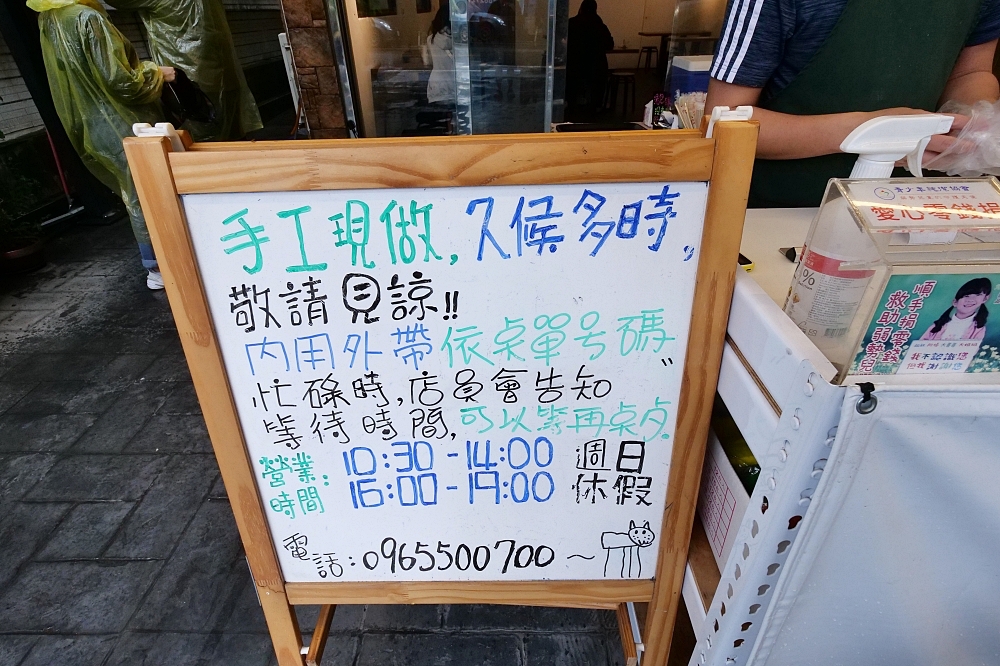 手工現做,久候多時,
敬請見諒!!
內用外帶依桌單号碼"
忙碌時,店員會告知
等待時間,可以等再桌点.
營業時間:
10:30-14:00
16:00-19:00
週日
休假
電話:0965500700~
愛心零錢捐
順手捐零錢
救助弱勢兒
我不認識您
但我謝謝您